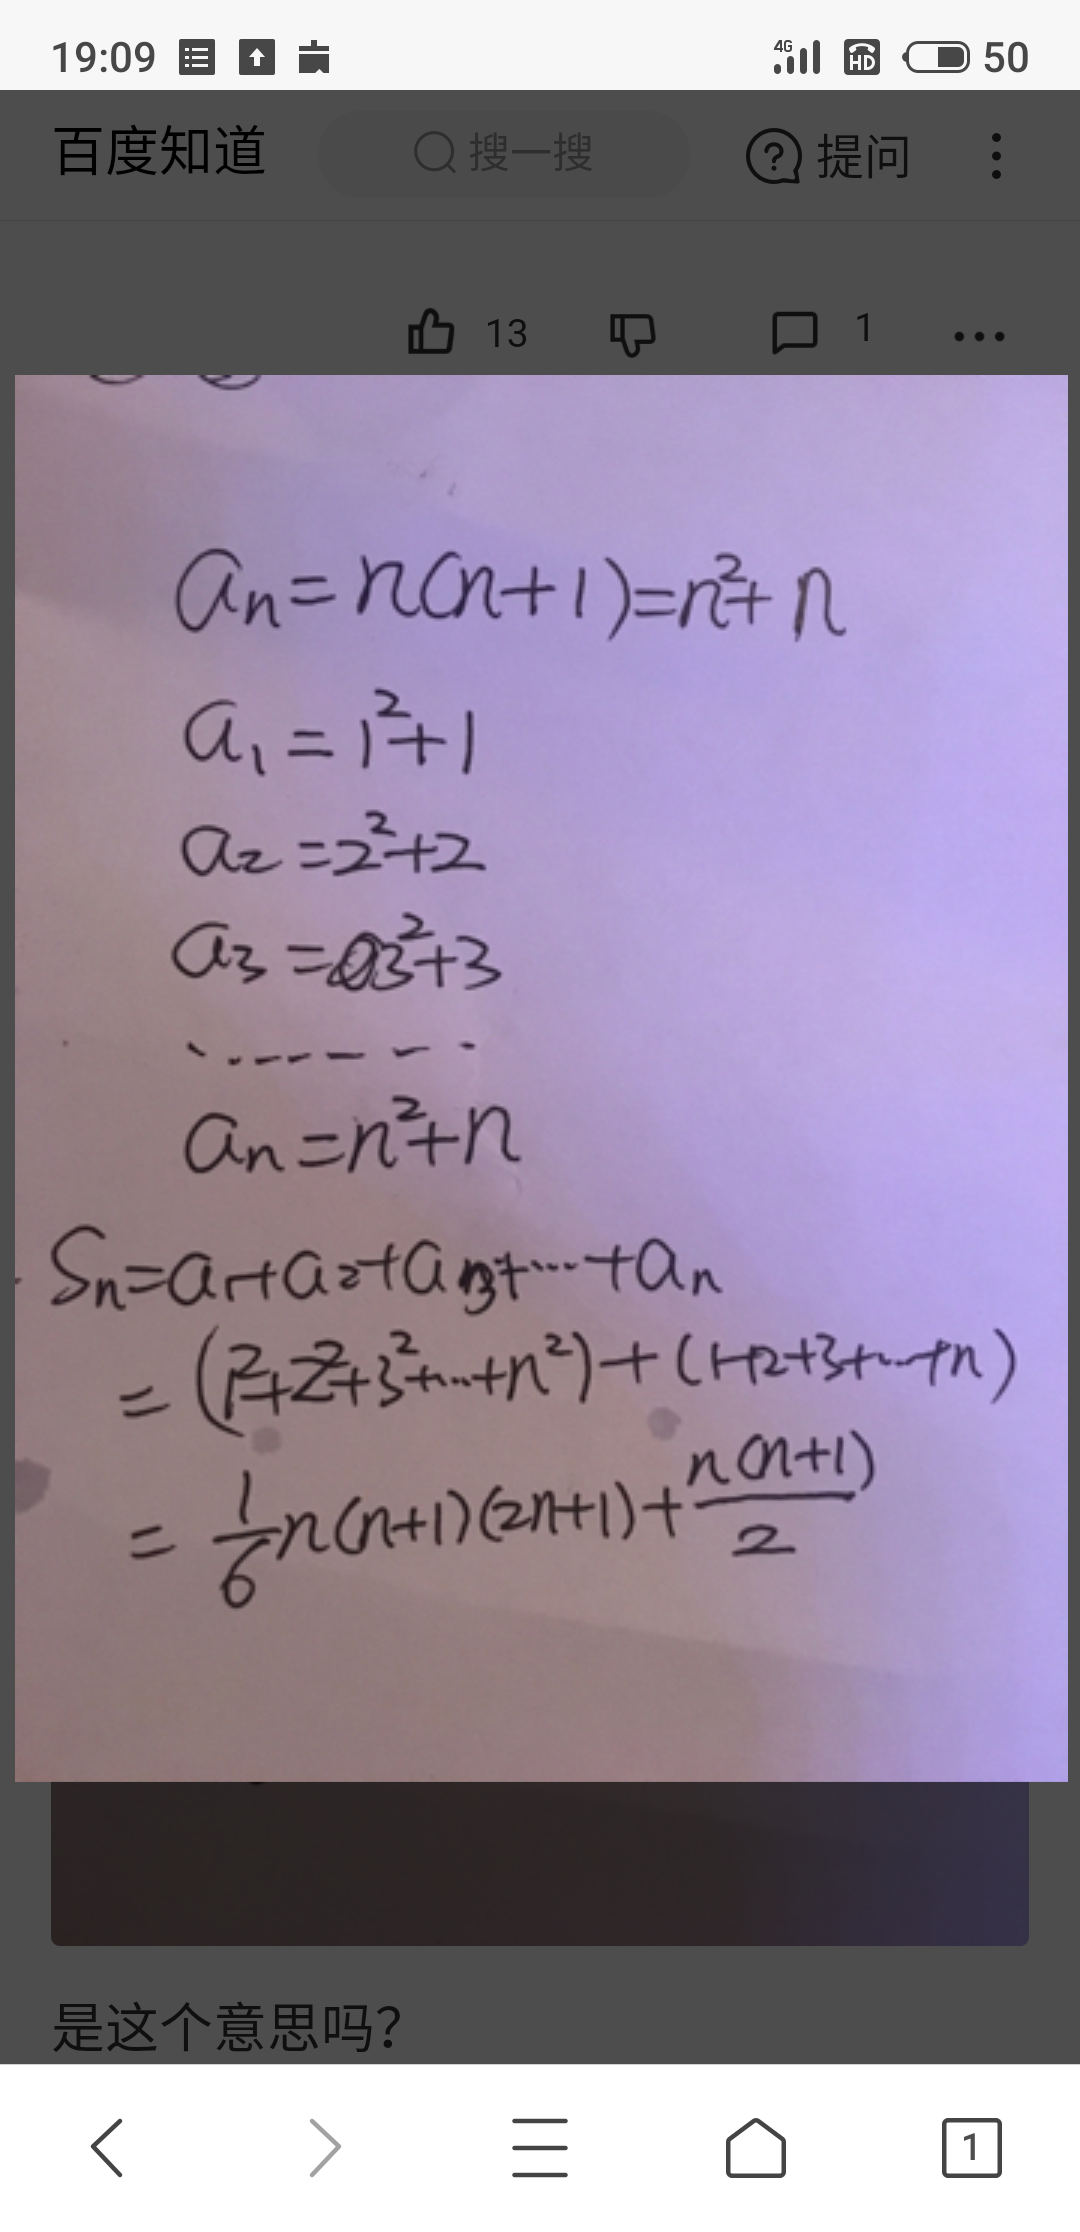 19:09 4G HD 50
百度知道 搜一搜 提问
13 1
an=n(n+1)=n²+n
a₁=1²+1
a₂=2²+2
a₃=3²+3
.......
an=n²+n
Sn=a₁+a₂+a₃+...+an
=(1²+2²+3²+...+n²)+(1+2+3+...+n)
=1/6n(n+1)(2n+1)+n(n+1)/2
是这个意思吗?
1